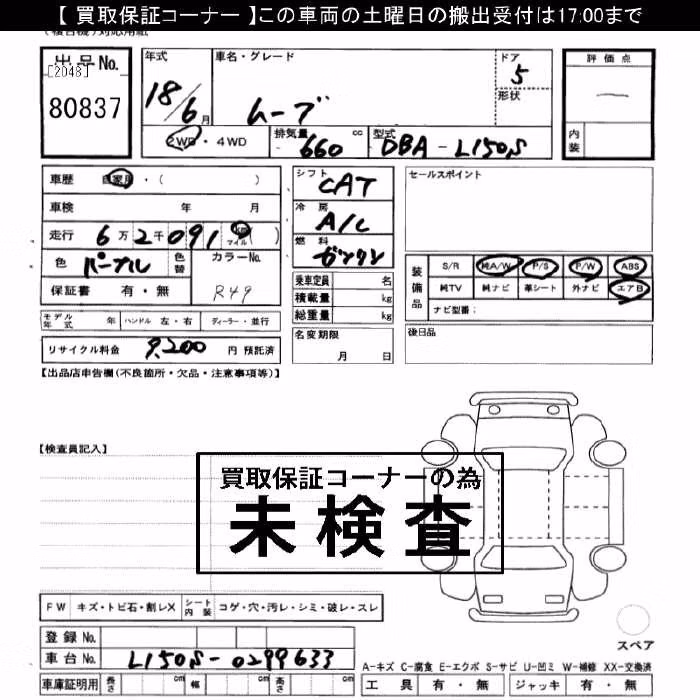 【 買取保証コーナー 】この車両の土曜日の搬出受付は17:00まで
出品No.
[2048]
80837
年式
18/6月
車名・グレード
ムーブ
ドア
5
形状
評価点
内装
2WD・4WD
排気量
660 cc
型式
DBA-L150S
車歴 自家用・( )
車検 年 月
走行 6万2千091 km マイル ( )
色 パープル 色替 カラーNo. R49
保証書 有・無
モデル年式 年 ハンドル 左・右 ディーラー・並行
リサイクル料金 9,200 円 預託済
シフト
CAT
冷房
A/C
燃料
ガソリン
乗車定員 名
積載量 kg
総重量 kg
名変期限
月 日
セールスポイント
装備品
S/R 純A/W P/S P/W ABS
純TV 純ナビ 革シート 外ナビ エアB
ナビ型番:
後日品
【出品店申告欄(不良箇所・欠品・注意事項等)】
【検査員記入】
買取保証コーナーの為
未検査
FW キズ・トビ石・割レX シート内装 コゲ・穴・汚レ・シミ・破レ・スレ
登録 No.
車台 No. L150S-0299633
車庫証明用 長さ cm 幅 cm 高さ cm
スペア
A-キズ C-腐食 E-エクボ S-サビ U-凹ミ W-補修 XX-交換済
工具 有・無 ジャッキ 有・無